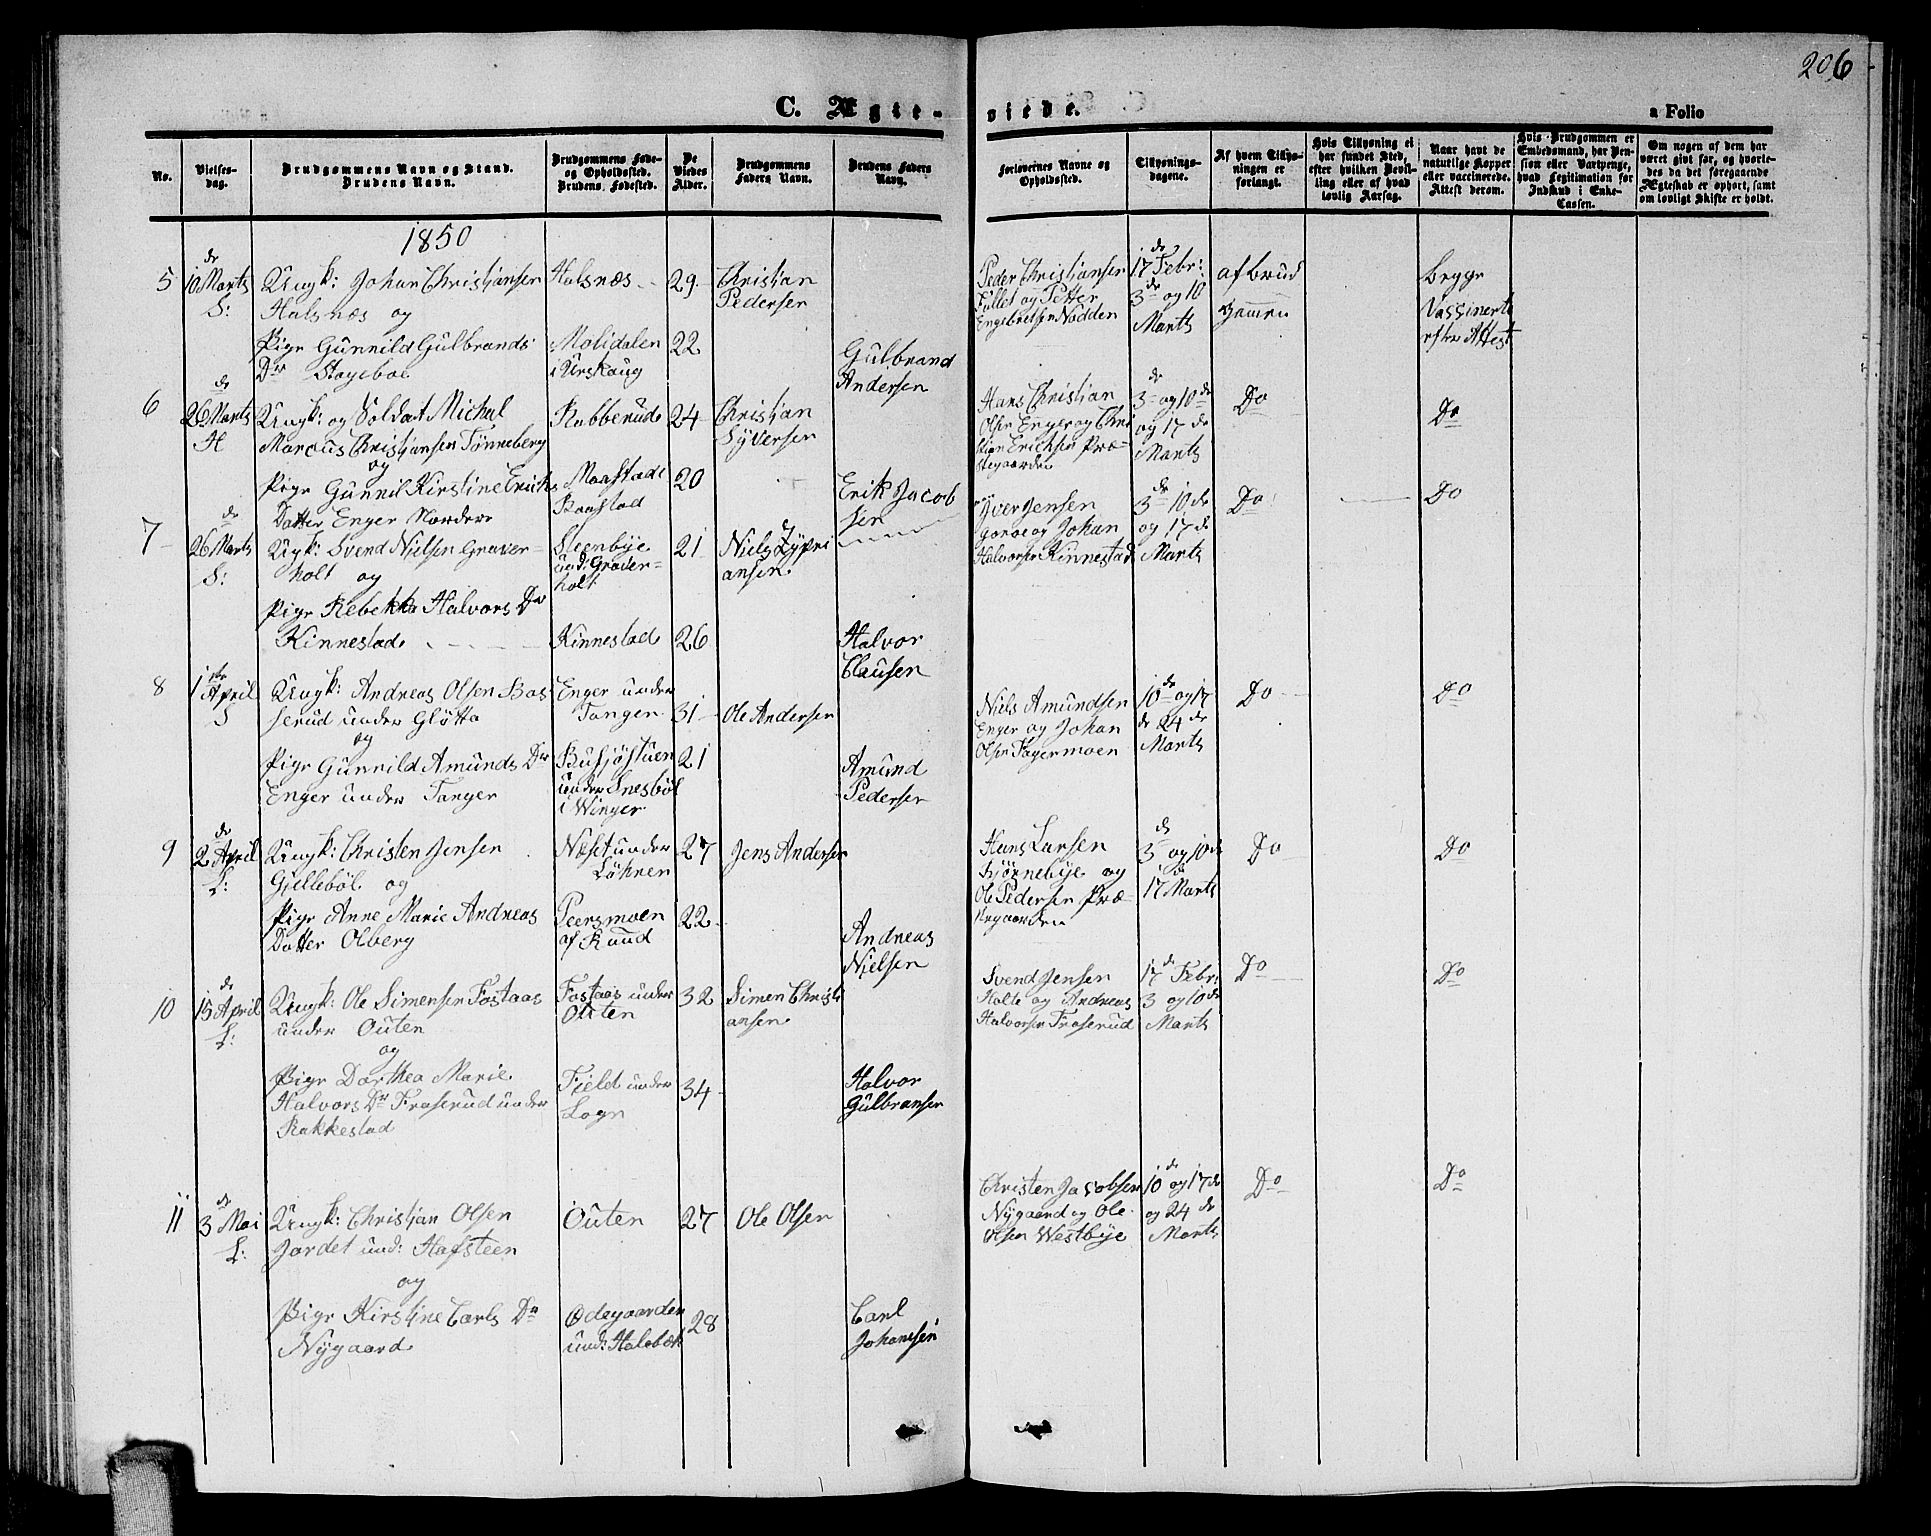 206
C. Ægte-
viede.
a Folio
No.
Vielses-
dag.
Brudgommens Navn og Stand.
Brudens Navn.
Brudgommens Føde-
og Opholdssted.
Brudens Fødested.
De
Viedes
Alder.
Brudgommens
Faders Navn.
Brudens Faders
Navn.
Forlovernes Navne og
Opholdssted.
Tillysnings-
dagene.
Af hvem Tillys-
ningen er
forlangt.
Hvis Tillysning ei
har fundet Sted,
efter hvilken Bevil-
ling eller af hvad
lovlig Aarsag.
Naar havt de
naturlige Kopper
eller vaccinerede.
Attest derom.
Hvis Brudgommen er
Embedsmand, har Pen-
sion eller Vartpenge,
hvad Legitimation for
Indskud i Enke-
Cassen.
Om nogen af dem har
været gift før, og hvorle-
des da det foregaaende
Ægteskab er ophørt, samt
om lovligt Skifte er holdt.
1850
5
10de Marts
S:
Ungk: Johan Christjansen
Halsnæs og
Pige Gunnild Gulbrands
Dr
Halsnæs
Molidalen
i Urskoug
29
22
Christjan
Pedersen
Gulbrand
Andersen
Peder Christjansen
og Petter
Engebretsen Nodden
17de Febr:
3de og 10
Marts
af Brud
gommen
Begge
Vassinerte
efter Attest
6
26de Marts
H
Ungk: og Soldat Michal
Marcus Christjansen Tønneberg
og
Pige Gunnil Kirstine Erichs
Datter Enger Nordere
Rubberud
24
20
Christjan
Syversen
Erik Jacob
sen
Hans Christjan
Olsen Enger og Chri
stian Erichsen Præ-
stegaarden
3de og 10de
og 17de
Marts
Do
Do
7
26de Marts
S:
Ungk: Svend Nielsen Graver-
holt og
Pige Rebekka Halvors Dr
Kinnestad
Steenbye
und: Graver-
holt
Kinnestad
21
26
Niels Zypri
ansen
Halvor
Clausen
Syver Jensen
og Johan
Halvorsen Kinnestad
3de 10de
og 17de
Marts
Do
Do
8
1ste April
S
Ungk: Andreas Olsen Bas
serud under Glötta
og
Pige Gunnild Amunds Dr
Enger under Tanger
Enger under
Tanger
Busjöstuen
under Snesböl
i Winger
31
21
Ole Andersen
Amund
Pedersen
Niels Amundsen
Enger og Johan
Olsen Fagermoen
10de og 17
de 24de
Marts
Do
Do
9
2de April
L:
Ungk: Christen Jensen
Gjellebøl og
Pige Anne Marie Andreas
Datter Olberg
Næset under
Löknen
Peersmoen
af Ruud
27
22
Jens Andersen
Andreas
Nielsen
Hans Larsen
Bjørnebye og
Ole Pedersen Præ-
stegaarden
3de og 10de
17de Marts
Do
Do
10
15de April
L:
Ungk: Ole Simensen Fostaas
under Outen
og
Pige Dorthea Marie
Halvors Dr Froserud under
Rakkestad
Fostaas under
Outen
Field under
Logn
32
34
Simen Christi
ansen
Halvor
Gulbransen
Svend Jensen
Holte og Andreas
Halvorsen Froserud
17de Febr:
3 og 10de
Marts
Do
Do
11
3de Mai
L:
Ungk: Christjan Olsen
Jordet und: Hafsteen
og
Pige Kirstine Carls Dr
Nygaard
Outen
Ødegaarden
und: Halebæk
27
28
Ole Olsen
Carl
Johansen
Christen Jacobsen
Nygaard og Ole
Olsen Westbye
10de og 17de
og 24de
Marts
Do
Do